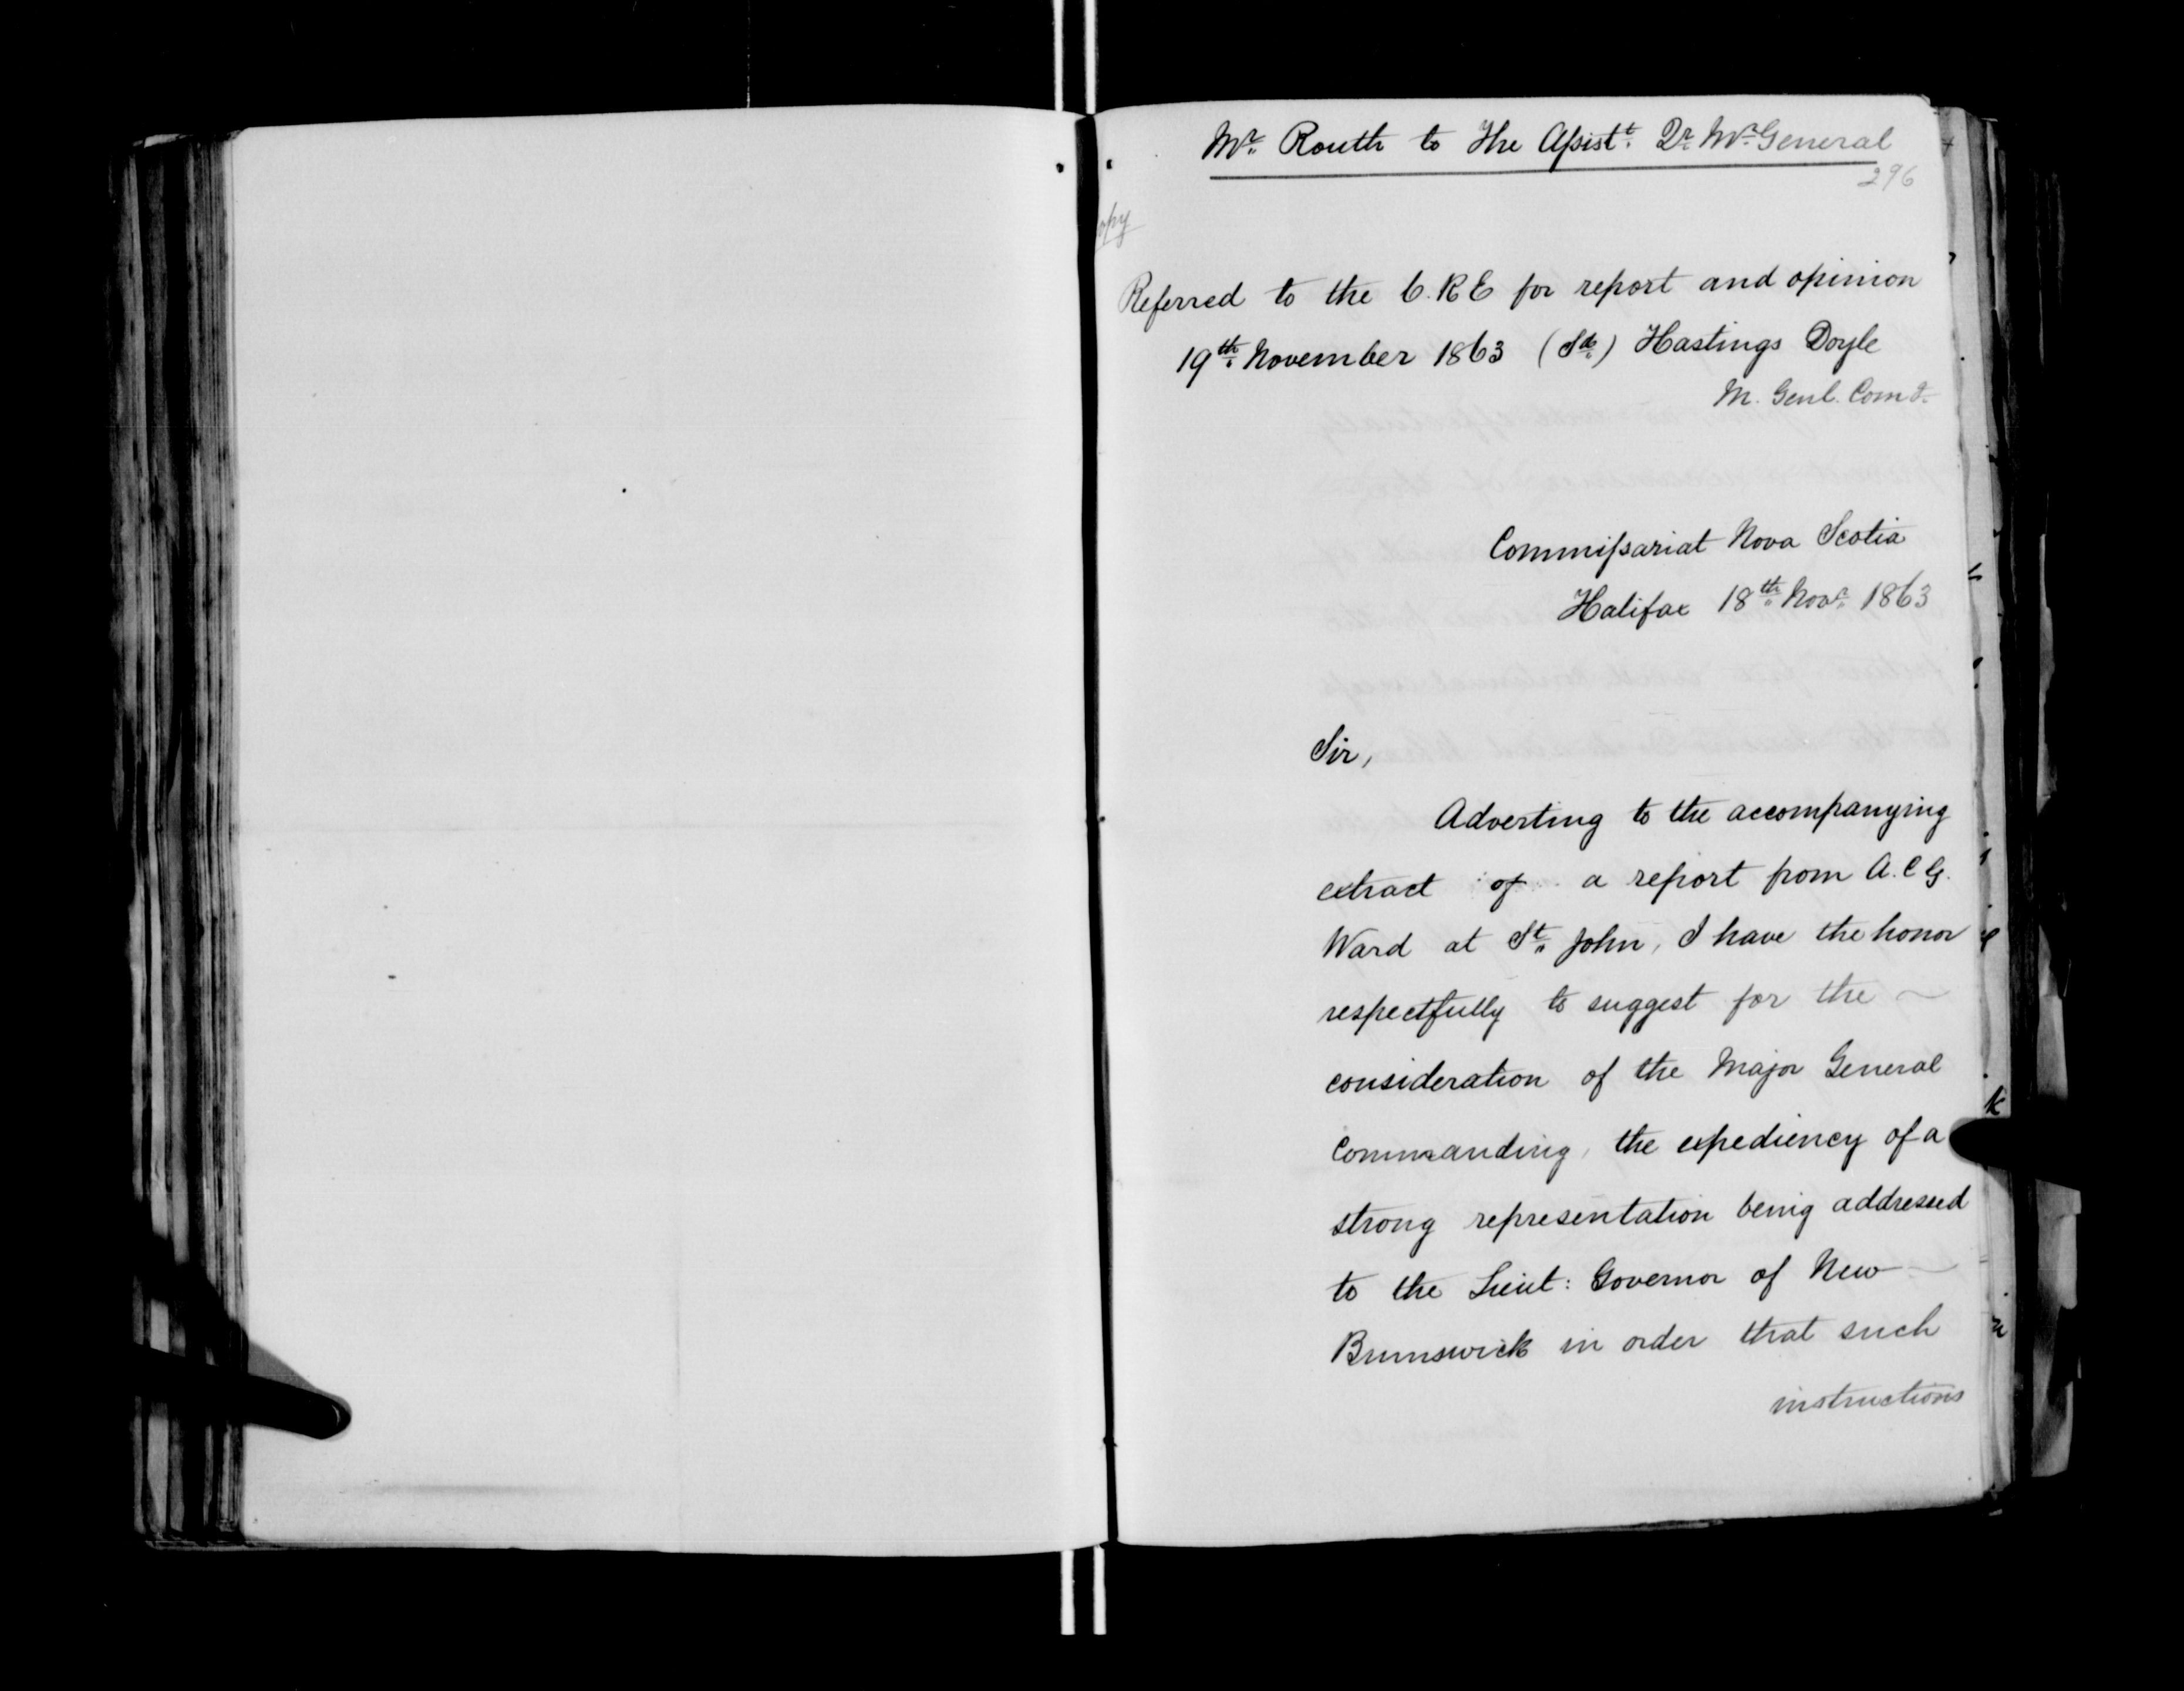 Mr. Routh to The Assistt. Qr. Mr. General
296
opy
Referred to the C.R.E for report and opinion
19th. November 1863 (Sd.) Hastings Doyle
M. Genl. Comd.
Commissariat Nova Scotia
Halifax 18th. Novr. 1863
Sir,
Adverting to the accompanying
extract of a report from A.C.G.
Ward at St. John, I have the honor
respectfully to suggest for the
consideration of the Major General
Commanding, the expediency of a
strong representation being addressed
to the Lieut: Governor of New
Brunswick in order that such
instructions